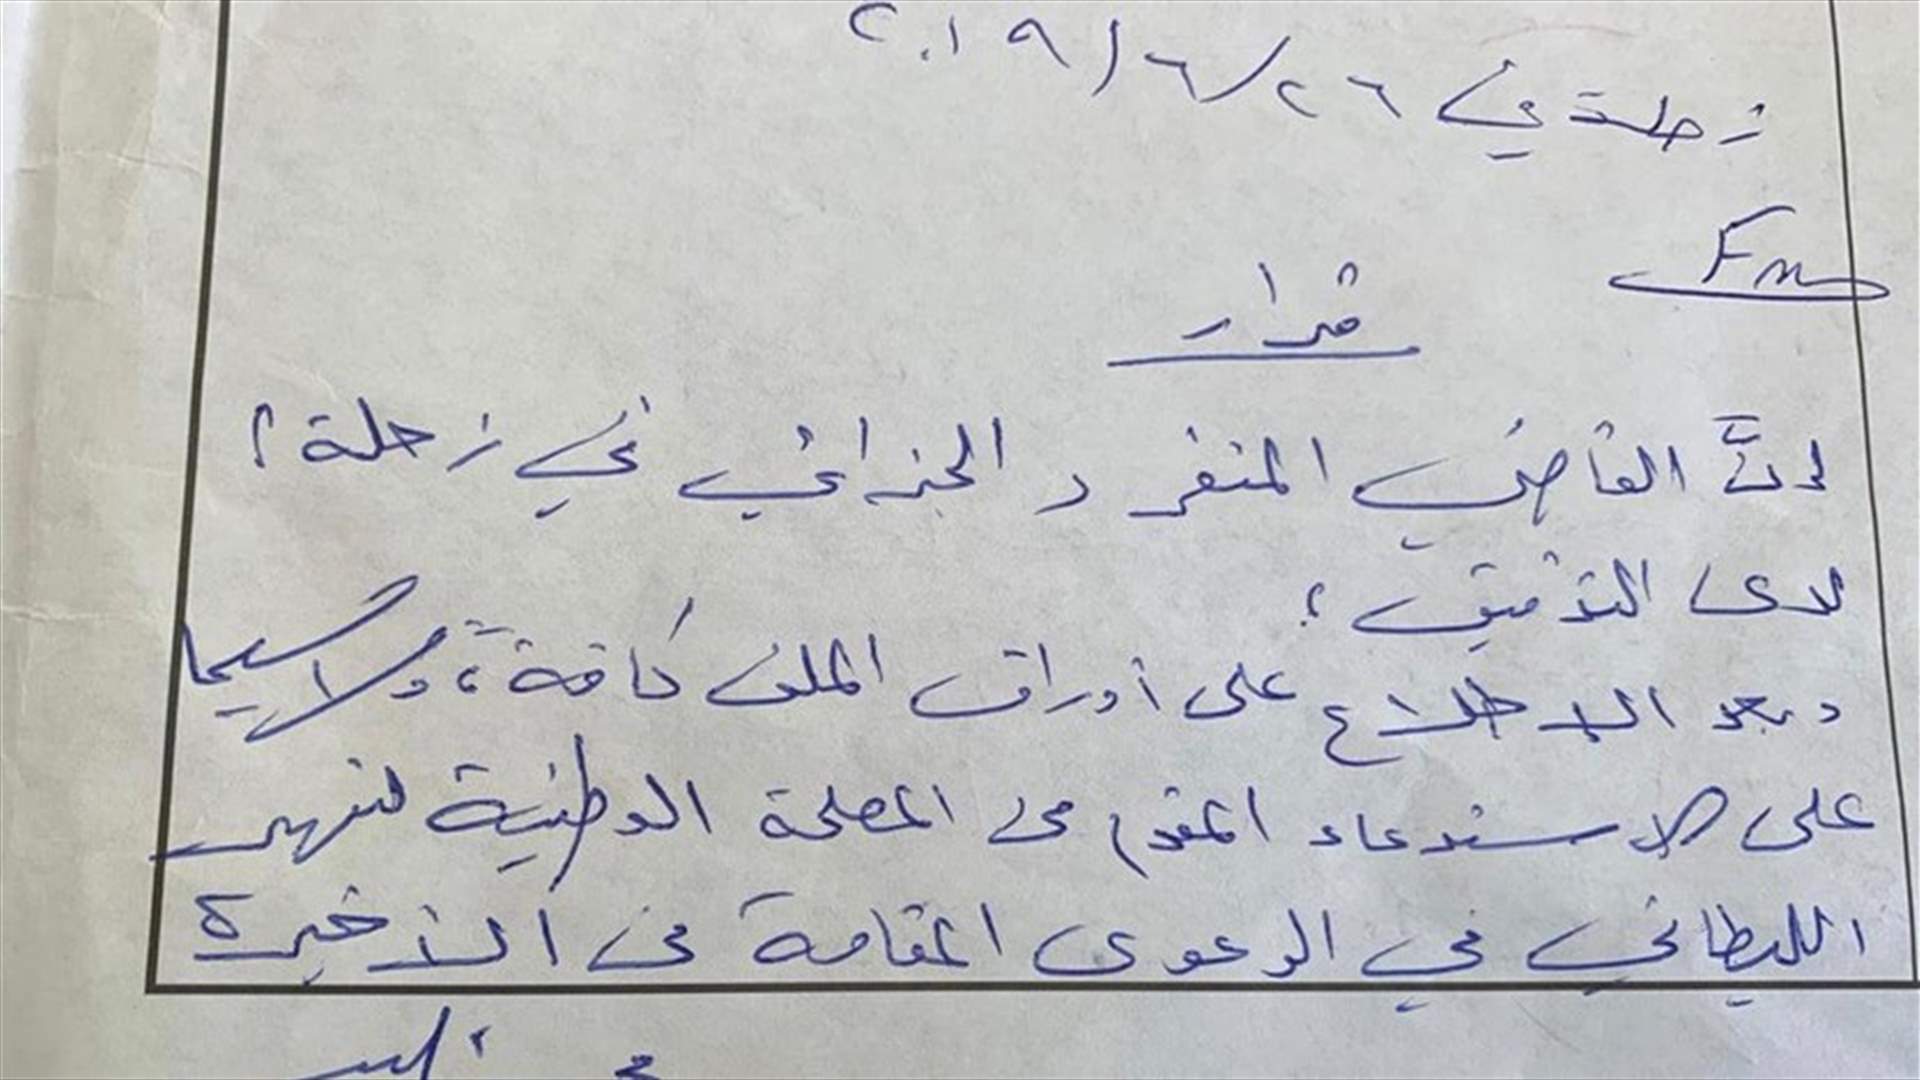 زحلة في ٢٦/٦/٢٠١٩
قرار
إنَّ القاضي المنفرد الجزائي في زحلة؛
لدى التدقيق؛
وبعد الاطلاع على أوراق الملف كافةً، ولا سيما
على الاستدعاء المقدم من المصلحة الوطنية لنهر
الليطاني في الدعوى المقامة من الأخيرة